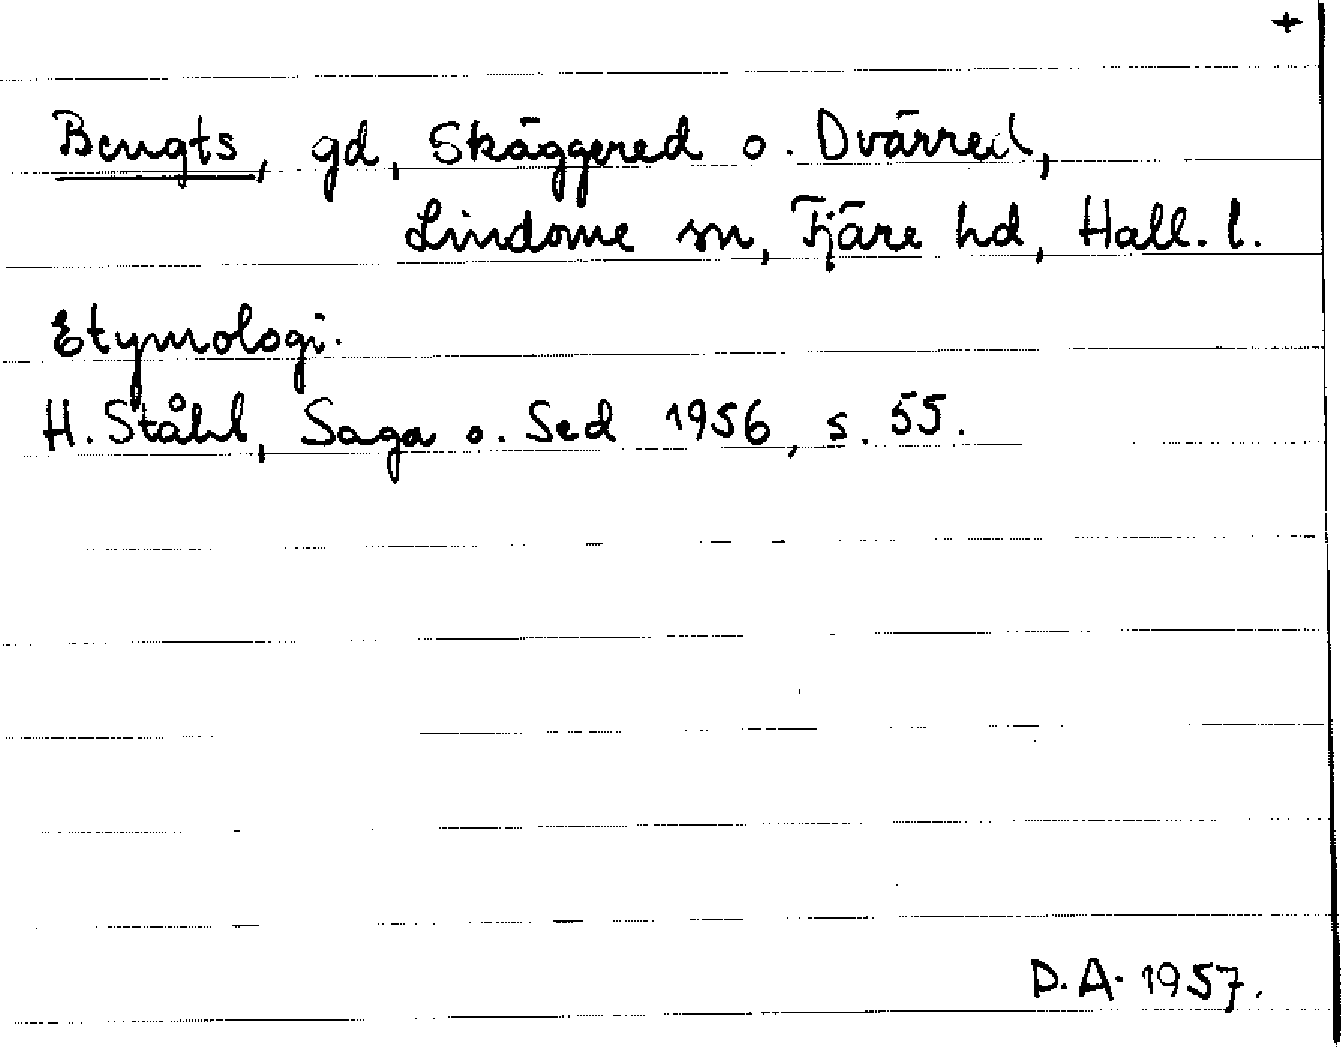 +
Bengts, gd, Skäggered o. Dvärred,
Lindome sn, Fjäre hd, Hall. l.
Etymologi.
H. Ståhl, Saga o. Sed 1956, s. 55.
D.A. 1957.